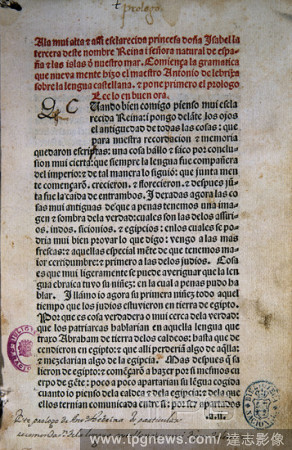 prologo
A la muy alta τ assi esclarecida princesa doña Isabel la
tercera deste nombre Reina i señora natural de espa
ña τ las islas de nuestro mar. Comiença la gramatica
que nueva mente hizo el maestro Antonio de lebrixa
sobre la lengua castellana. τ pone primero el prologo
Lee lo en buen ora.
Cuando bien comigo pienso mui escla
recida Reina: i pongo delante los ojos
el antiguedad de todas las cosas: que
para nuestra recordacion τ memoria
quedaron escriptas: una cosa hallo τ saco por conclu
sion mui cierta: que siempre la lengua fue compañera
del imperio: τ de tal manera lo siguio: que junta men
te començaron. crecieron. τ florecieron. τ despues jũ
ta fue la caida de entrambos. I dexadas agora las co
sas mui antiguas de que a penas tenemos una ima
gen τ sombra dela verdad: cuales son las delos assiri
os. indos. sicionios. τ egipcios: enlos cuales se po
dria mui bien provar lo que digo: vengo a las mas
frescas: τ aquellas especial mẽte de que tenemos ma
ior certidumbre: τ primero a las delos judios. Cosa
es que mui ligera mente se puede averiguar que la len
gua ebraica tuvo su niñez: en la cual a penas pudo ha
blar. I llamo io agora su primera niñez todo aquel
tiempo que los judios estuvieron en tierra de egipto.
Por que es cosa verdadera o mui cerca dela verdad:
que los patriarcas hablarian en aquella lengua que
traxo Abraham de tierra delos caldeos: hasta que de
cendieron en egipto: τ que alli perderian algo de aq̃lla:
τ mezclarian algo dela egipcia. Mas despues q̃ sa
lieron de egipto: τ començarõ a hazer por si mesmos cu
erpo de gẽte: poco a poco apartarian su lẽgua cogida
cuanto io pienso dela caldea τ dela egipcia: τ dela que
ellos ternian comunicada entre si: por ser apartados
a.ii.
www.tpgnews.com / 達志影像